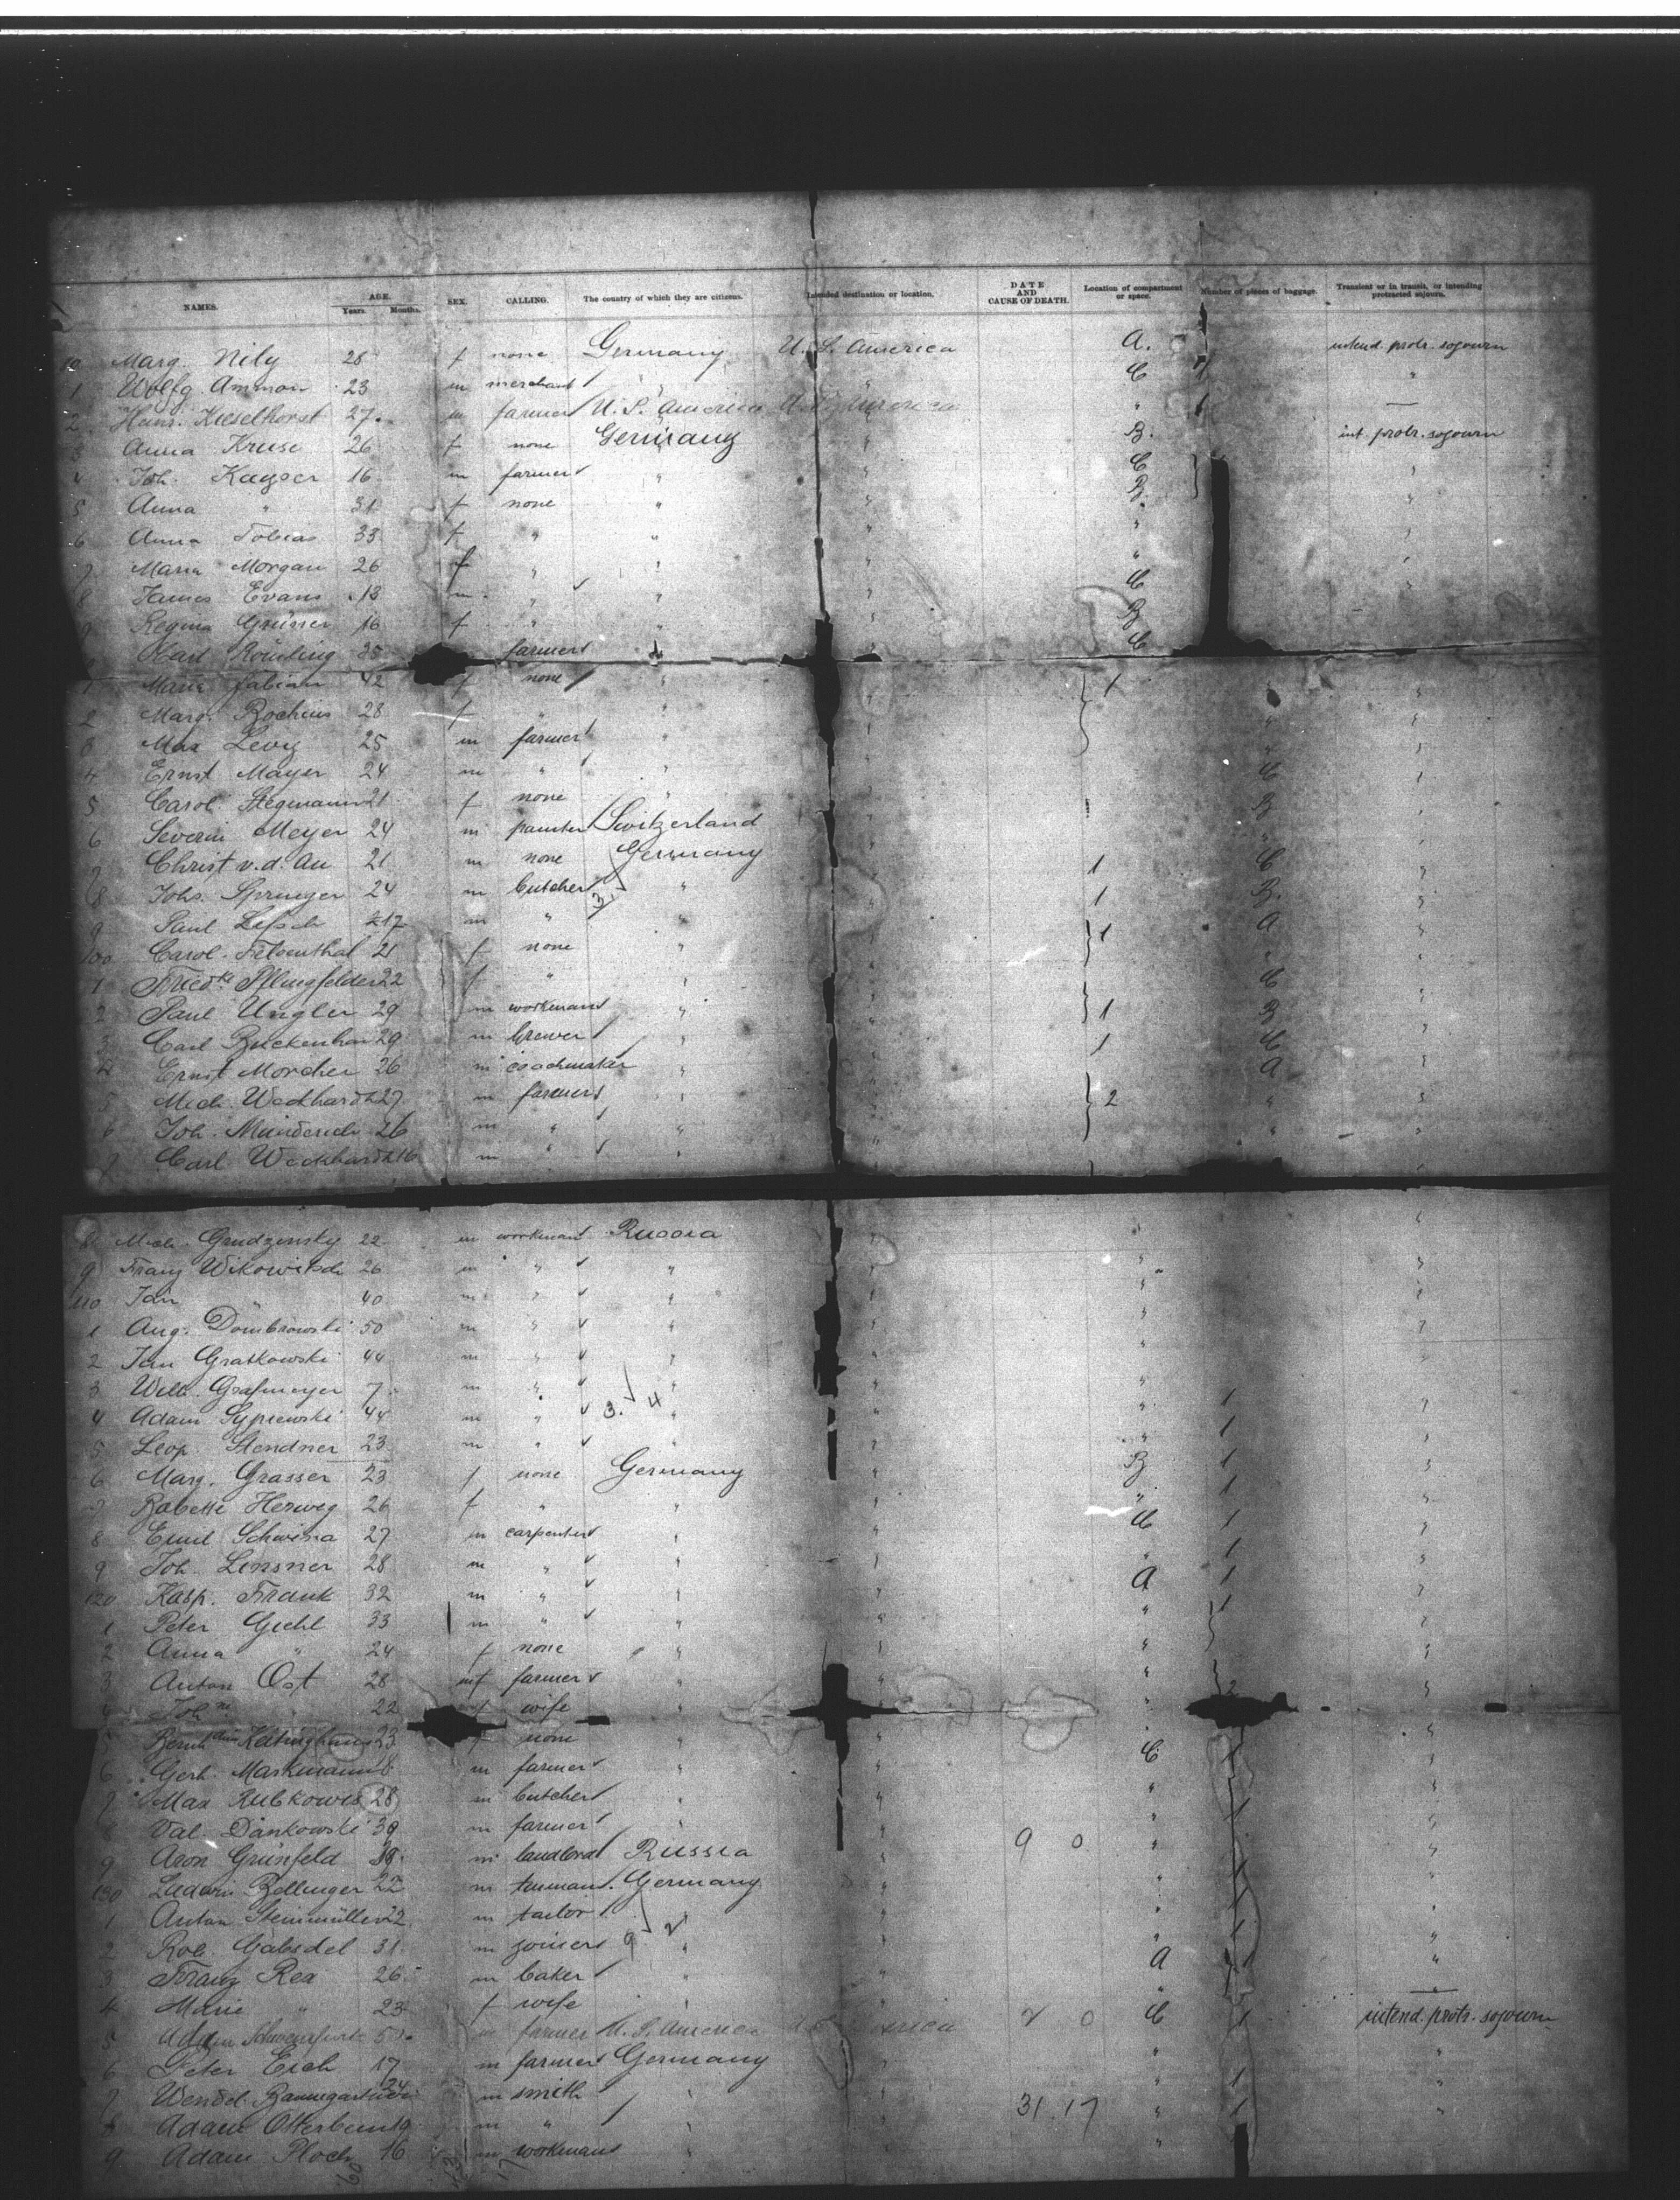 NAMES. AGE. Years. Months. SEX. CALLING. The country of which they are citizens. Intended destination or location. DATE AND CAUSE OF DEATH. Location of compartment or space. Number of pieces of baggage. Transient or in transit, or intending protracted sojourn.
Marg. Nily 28 f none Germany U. S. America A. intend. protr. sojourn
1 Wolfg. Ammon 23 m merchant " " C 1 "
2 Hans. Kieselhorst 27 m farmer U. S. America U. S. America " 1 —
3 Anna Kruse 26 f none Germany " B. int. protr. sojourn
4 Joh. Kayser 16 m farmer " " C "
5 Anna " 31 f none " " B. "
6 Anna Tobias 33 f " " " " "
7 Maria Morgan 26 f " " " " "
8 James Evans 18 m " " " C "
9 Regina Grüner 16 f " " " B
Karl 35 farmer " C
1 Maria Fabian 42 f none " " 1 "
2 Marg. Bochins 28 f " " " " "
3 Max Levy 25 m farmer " " " "
4 Ernst Mayer 24 m " " " C "
5 Carol. Stegmann 21 f none " " B "
6 Severin Meyer 24 m painter Switzerland " " "
7 Christ v. d. Au 21 m none Germany " 1 C "
8 Johs. Sprenger 24 m butcher 3 " " 1 B. "
9 Paul 17 m " " " 1 A "
100 Carol. Felsenthal 21 f none " " " "
1 Friedke. Pflugfelder 22 f " " " C "
2 Paul Ungler 29 m workman " " 1 B "
3 Carl 29 m brewer " " 1 C "
4 Ernst Morcher 26 m coachmaker " " A "
5 Mich. Weckhardt 27 m farmer " " 2 " "
6 Joh. Münderich 26 m " " " " "
7 Carl Weckhardt 16 m " "
8 Mich. Grudzinsky 22 m workman Russia " " "
9 Franz Wikowitsch 26 m " " " " "
110 Jan 40 m " " " " "
1 Aug. Dombrowski 50 m " " " " "
2 Jan Gratkowski 44 m " " " " "
3 Wilh. Grafmeyer 7 m " " " " 1
4 Adam Sypniewski 44 m " 3. 4 " " " 1 "
5 Leop. Stendner 23 m " " " " 1 "
6 Marg. Grasser 23 f none Germany " B 1 "
7 Babette Herweg 26 f " " " " 1 "
8 Emil Schwina 27 m carpenter " " C 1 "
9 Joh. Linsner 28 m " " " " 1 "
120 Kasp. Frank 32 m " " " A 1 "
1 Peter Giehl 33 m " " " " 1 "
2 Anna " 24 f none " " " "
3 Anton Ost 28 m farmer " " " 2 "
4 Joh.ne 22 f wife " "
5 23 f none " " "
6 Gerh. Markmann 18 m farmer " " C 1 "
7 Max Rubkowis 28 m butcher " " " "
8 Val. Dankowski 39 m farmer " " " 1 "
9 Aron Grünfeld 39 m landlord Russia " 9 0 " "
130 Ludwin Bollinger 22 m Germany " " 1 "
1 Anton Steinmüller 22 m tailor " " " 1 "
2 Rob. Gabsdel 31 m joiner 9 2 " " " 1 "
3 Franz Rex 26 m baker " " A 1 "
4 Marie " 23 f wife " —
5 Adam Schweinfurth 50 m farmer U. S. America America 2 0 C 1 intend. protr. sojourn
6 Peter Eich 17 m farmer Germany " " "
7 Wendel 24 m smith " " " 1 "
8 Adam Otterbein 19 m " " " 31. 17 " 1 "
9 Adam Ploch 16 m workman " " "